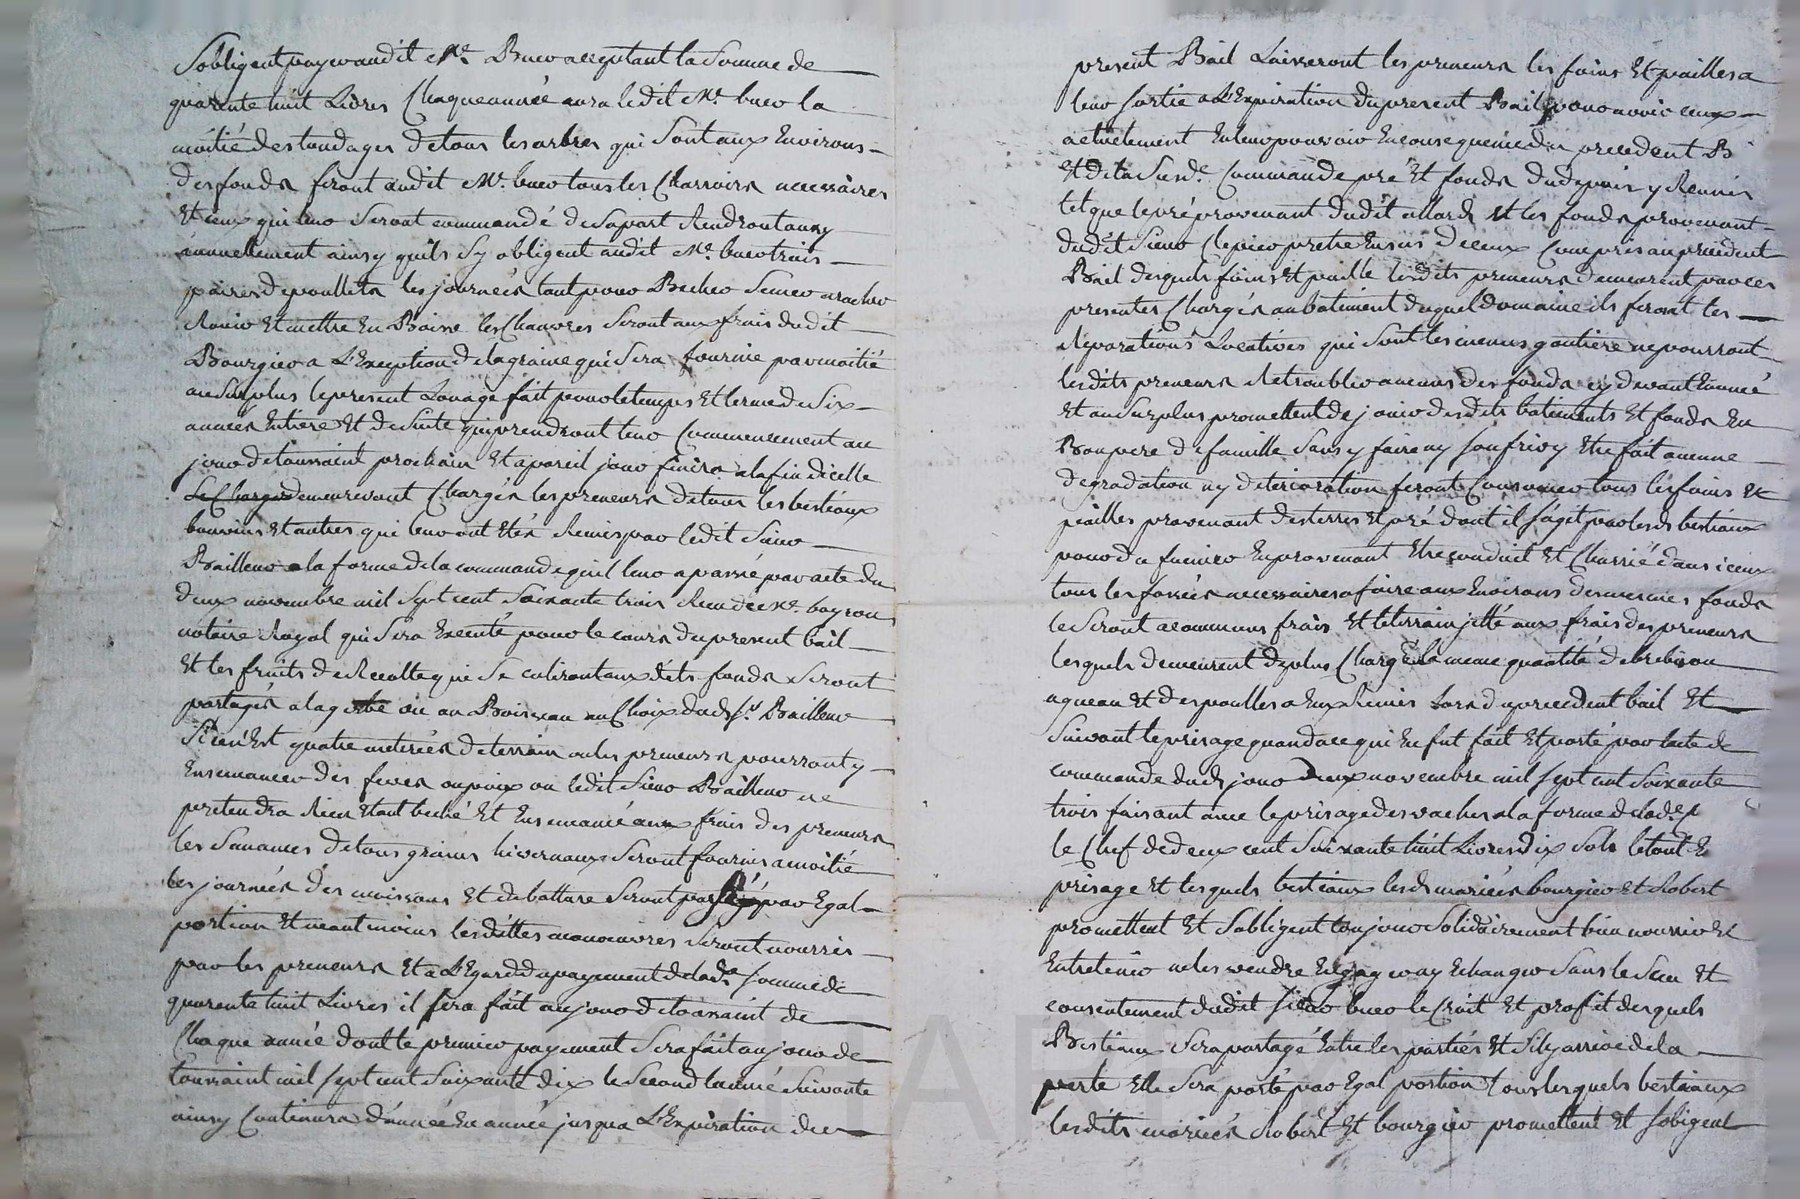 Sobligent payer audit Mr. Buer acceptant la Somme de
quarente huit Livres Chaque année aura ledit Mr. buer la
moitié des tondages de tous les arbres qui Sont aux Environs
des fonds feront audit Mr. buer tous les Charrois necessaires
Et ceux qui leur Seront commandé de Sapart Rendront aussy
annuellement ainsy quils Sy obligent audit Mr. buer trois
paires de poullets les journées tant pour Becher Semer aracher
Rouir Et mettre En Boisse les Chanvres Seront aux frais dudit
Bourgier a L'Exception de la graine qui Sera fournie par moitié
au Surplus le present Louage fait pour le temps Et terme de Six
années Entiere Et de Suitte qui prendront leur Commencement au
jour de toussaint prochain Et apareil jour finira a la fin dicelle
Se Charge demeureront Chargés les preneurs de tous les bestiaux
bouvins Et autres qui leur ont Etés Remis par ledit Sieur
Bailleur a la forme de la commande quil leur a passé par acte du
deux novembre mil Sept cent Soixante trois Reçu de Me. bayrou
notaire Royal qui Sera Executé pour le cours du present bail
Et les fruits de Recolte qui Se culiront aux dits fonds Seront
partagés a la gerbe ou au Boisseau au Choix dud Sr Bailleur
Si cen'Est quatre meterées de terrain ou les preneurs pourront y
Ensemancer des feves ou pois ou ledit Sieur Bailleur ne
pretendra Rien Etant beché Et Ensemancé aux frais des preneurs
les Semances de tous grains hivernaux Seront fournis a moitié
les journées des moissons Et de batture Seront par Egal
portion Et neantmoins les dittes manoeuvres Seront nourris
par les preneurs Et a L'Egard du payement de lade Somme de
quarente huit Livres il Sera fait au jour de toussaint de
Chaque année dont le premier payement Sera fait au jour de
toussaint mil Sept cent Soixante dix le Second lannée Suivante
ainsy Continuer d'année En année jusqua L'Expiration du
present Bail Laisseront les preneurs les foins Et pailles a
leur Sortie a L'Expiration du present Bail pour avoir ceux
actuelement En leur pouvoir En consequence du precedent B
Et de la Susde. Commande pré Et fonds du depuis y Reunis
tel que le pré provenant dudit allard Et les fonds provenant
dudit Sieur Clepier pretre En sus de ceux Compris au precedent
Bail desquels foins Et paille lesdits preneurs demeurent par ces
presentes Chargés au batiment duquel domaine ils feront les
Reparations Locatives qui Sont les menus goutiere ne pourront
lesdits preneurs Retroubler aucuns des fonds cy devant Enoncé
Et au Surplus promettent de jouir desdits batiments Et fonds En
Bon pere de famille Sans y faire ny Soufrir y Etre fait aucune
degradation ny deterioration feront Consumer tous les foins Et
pailles provenant des terres Et pré dont il Sagit par lesd bestiaux
pour du fumier En provenant Etre conduit Et Charrié dans iceux
tous les fossés necessaires a faire aux Environs des memes fonds
le Seront a communs frais Et le terrain jetté aux frais des preneurs
lesquels demeurent de plus Chargé de la meme quantité de brebis ou
agneau Et des poulles a Eux Remis Lors du precedent bail Et
Suivant le prisage quand a ce qui En fut fait Et porté par lacte de
commande dud jour deux novembre mil Sept cent Soixante
trois faisant avec le prisage des vaches a la forme de lade
le Chef de deux cent Soixante huit Livres dix Sols le tout de
prisage Et lesquels bestiaux lesd mariés bourgier Et Robert
promettent Et Sobligent toujour Solidairement bien nourrir Et
Entretenir ne les vendre Engager ny Echanger Sans le Sceu Et
consentement dudit Sieur buer le Croit Et profit desquels
Bestiaux Sera partagé Entre les partiés Et Sily arrive de la
perte Elle Sera porté par Egal portion tous lesquels bestiaux
lesdits mariés Robert Et bourgier promettent Et Sobligent